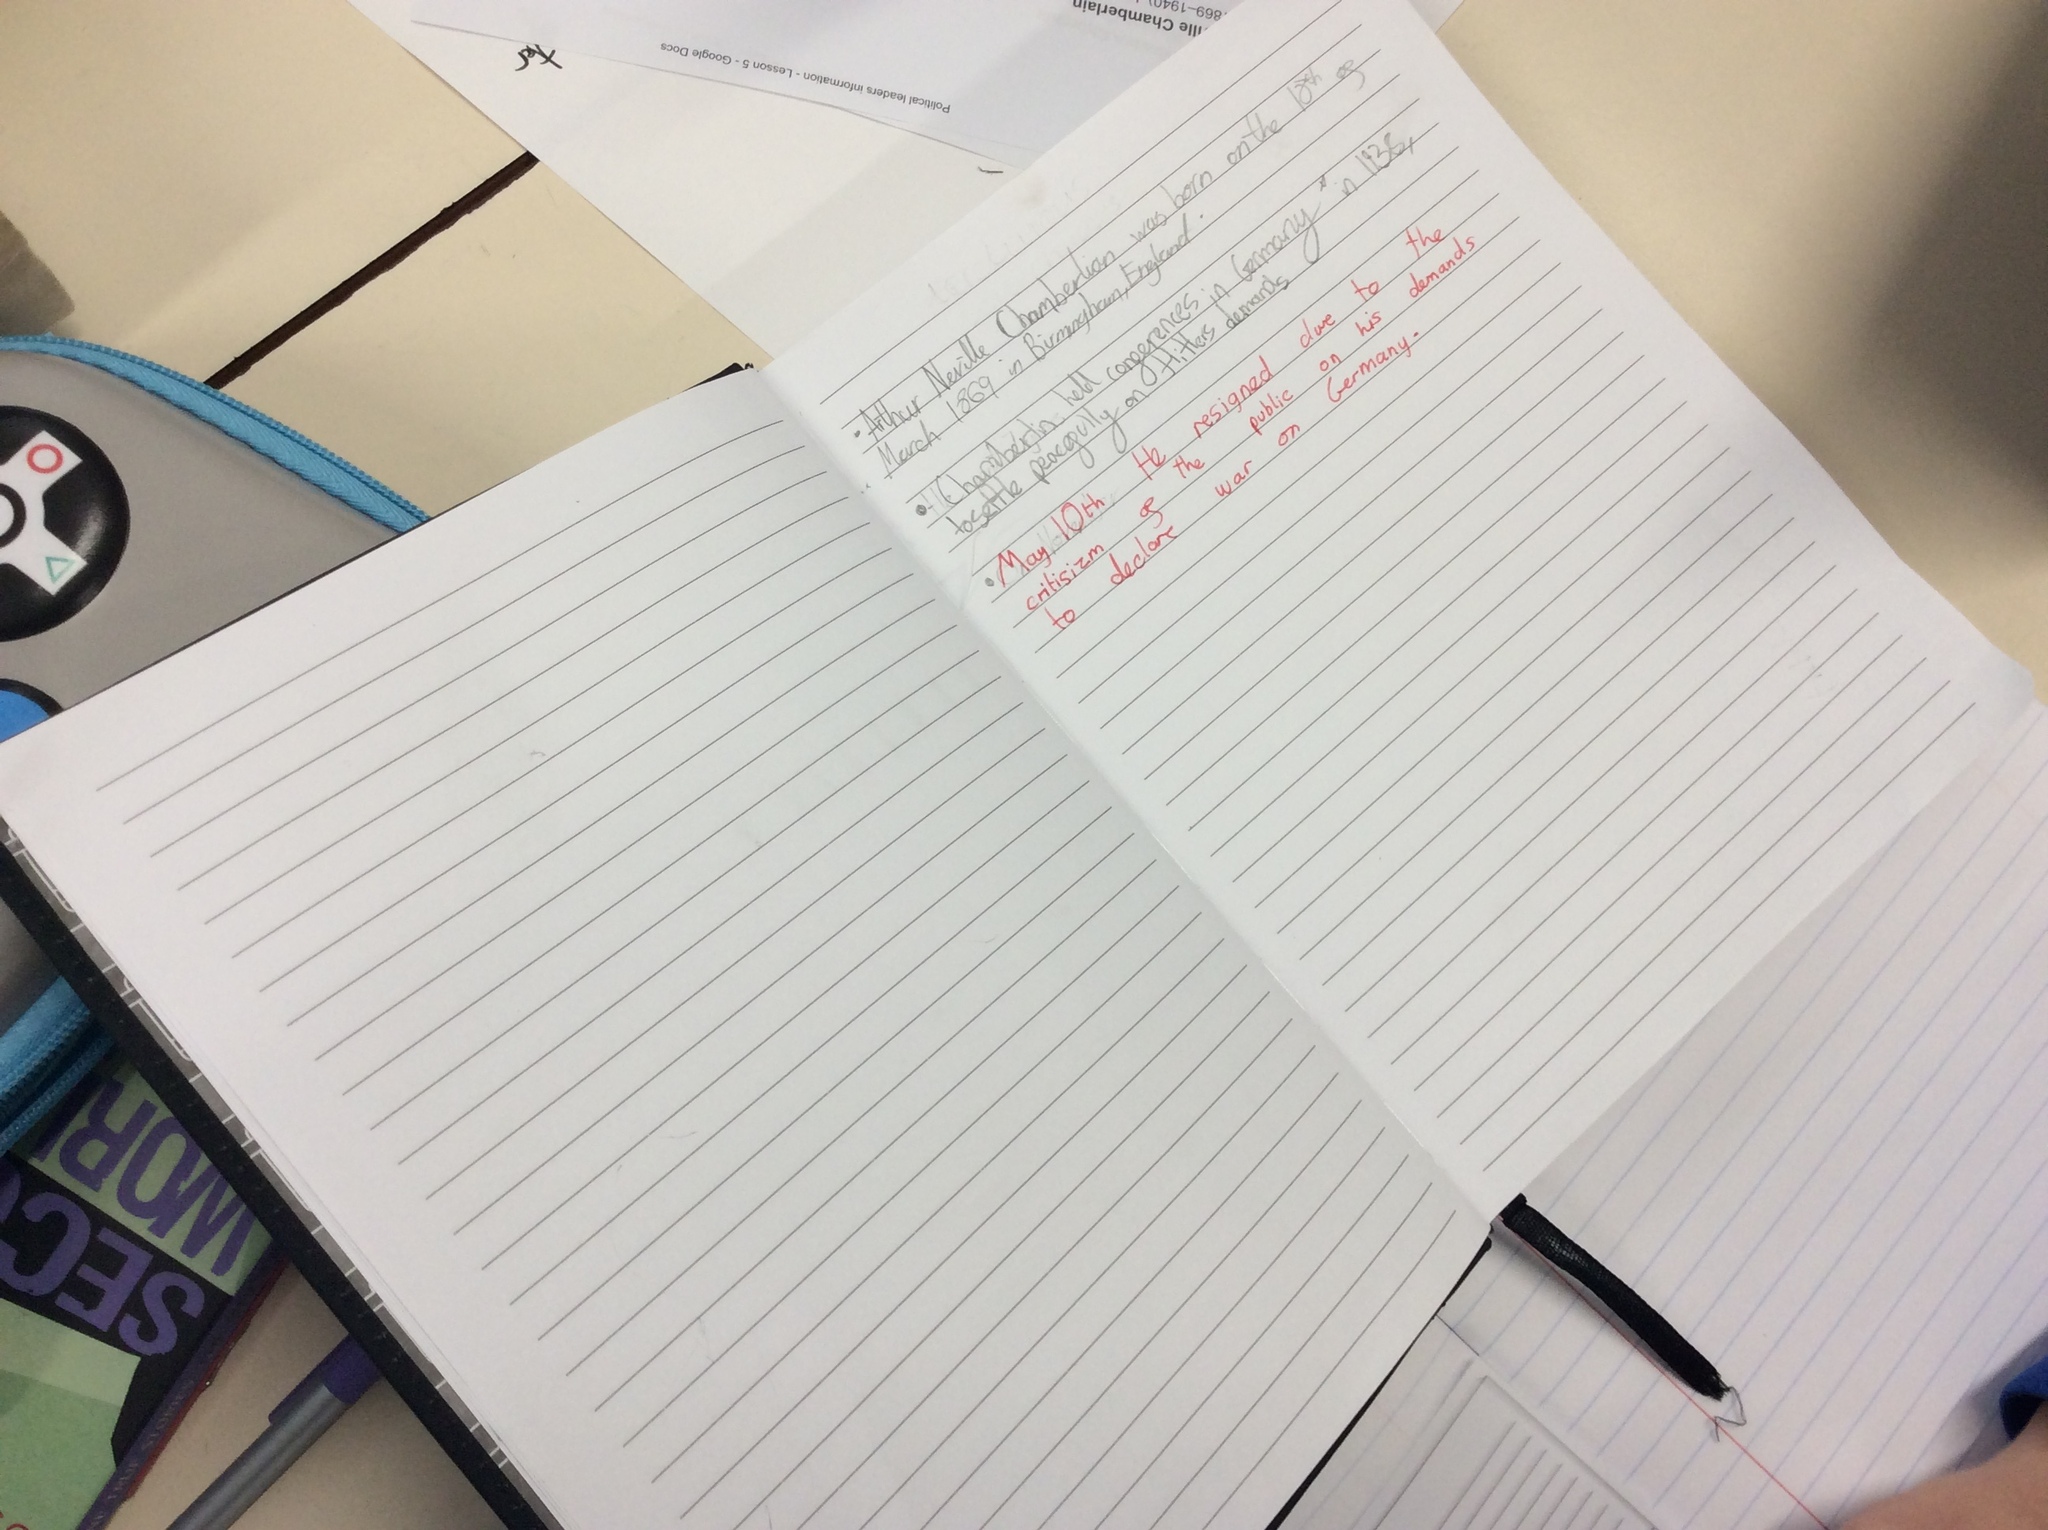 Arthur Neville Chamberlian was born on the 18th of
March 1869 in Birmingham, England.
Chamberlin held conferences in Germany in 1938,
to settle peacefully on Hitlers demands
May 10th He resigned due to the
critisizm of the public on his demands
to declare war on Germany.
Political leaders information - Lesson 5 - Google Docs
ville Chamberlain
869–1940)
SEC
WOR
TRUE STORIES